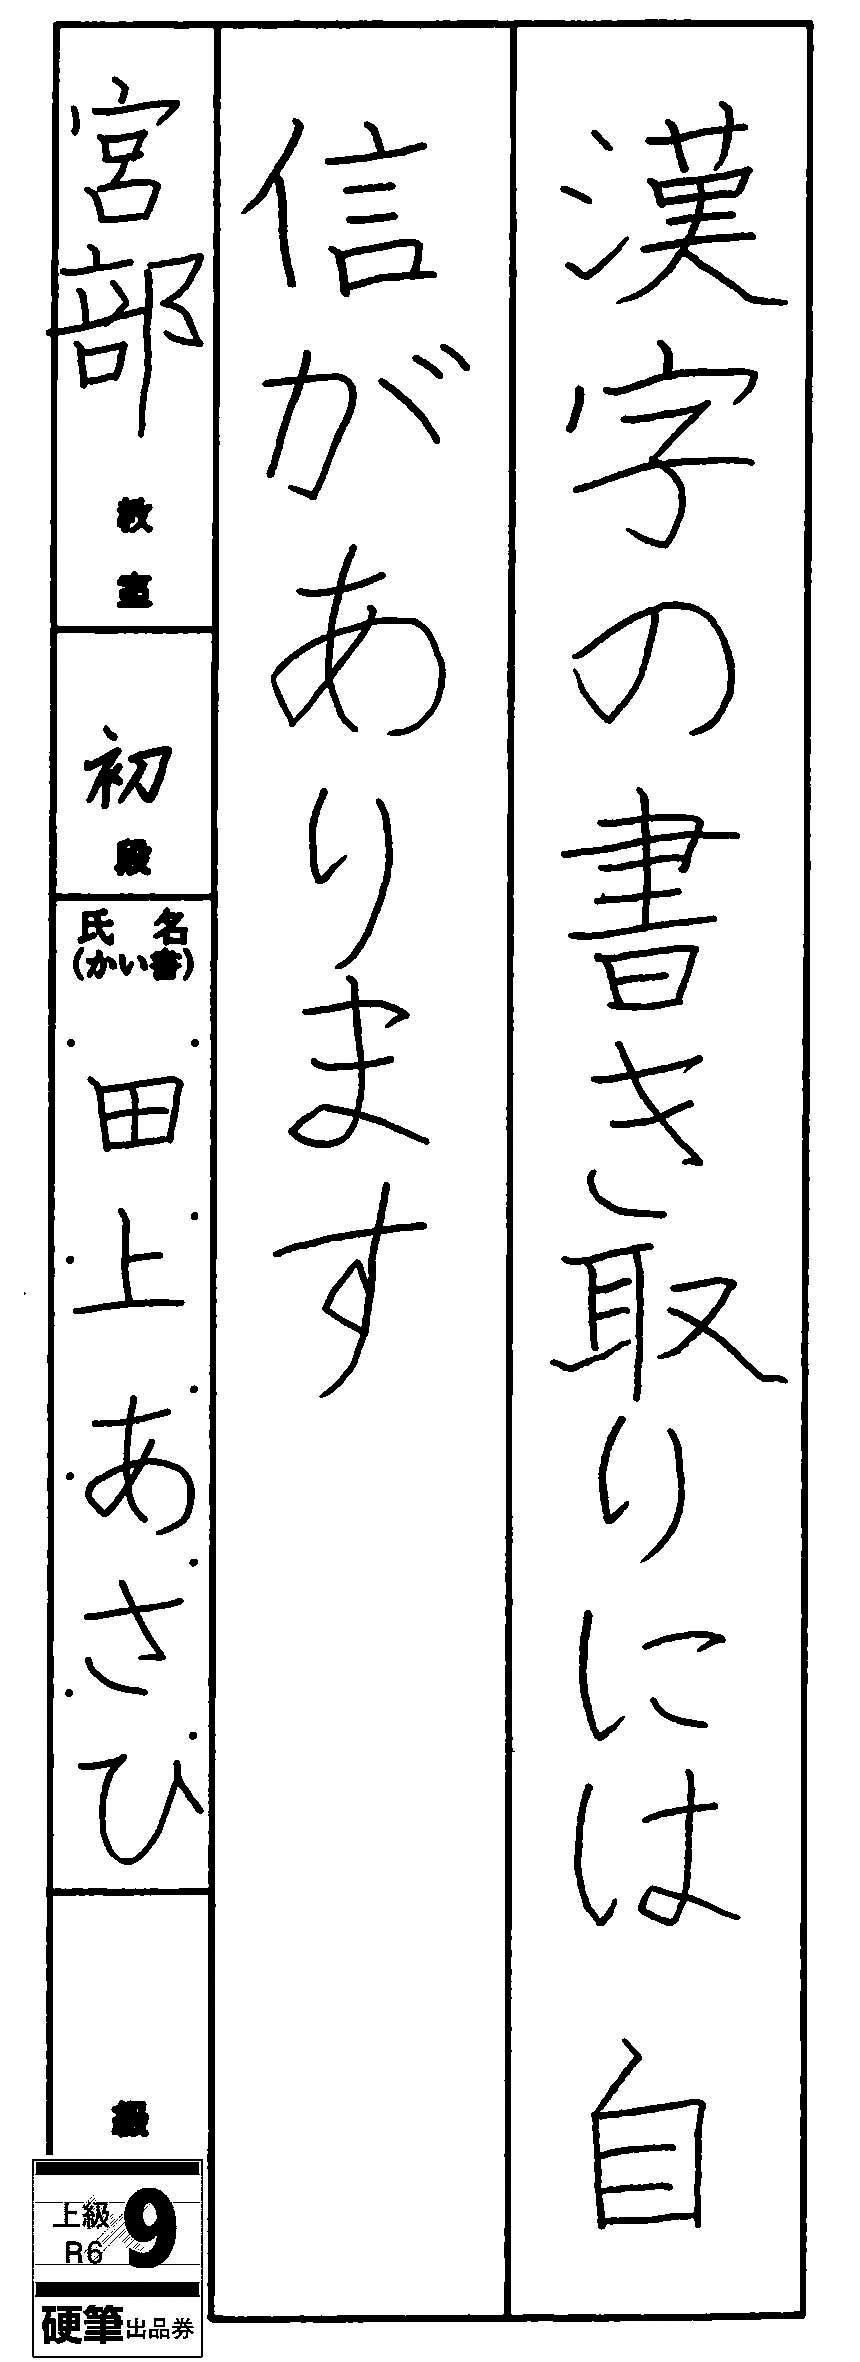 漢字の書き取りには自
信があります
宮部教室
初段
氏名
(かい書)
田上あさひ
級
上級
R6
9
硬筆出品券